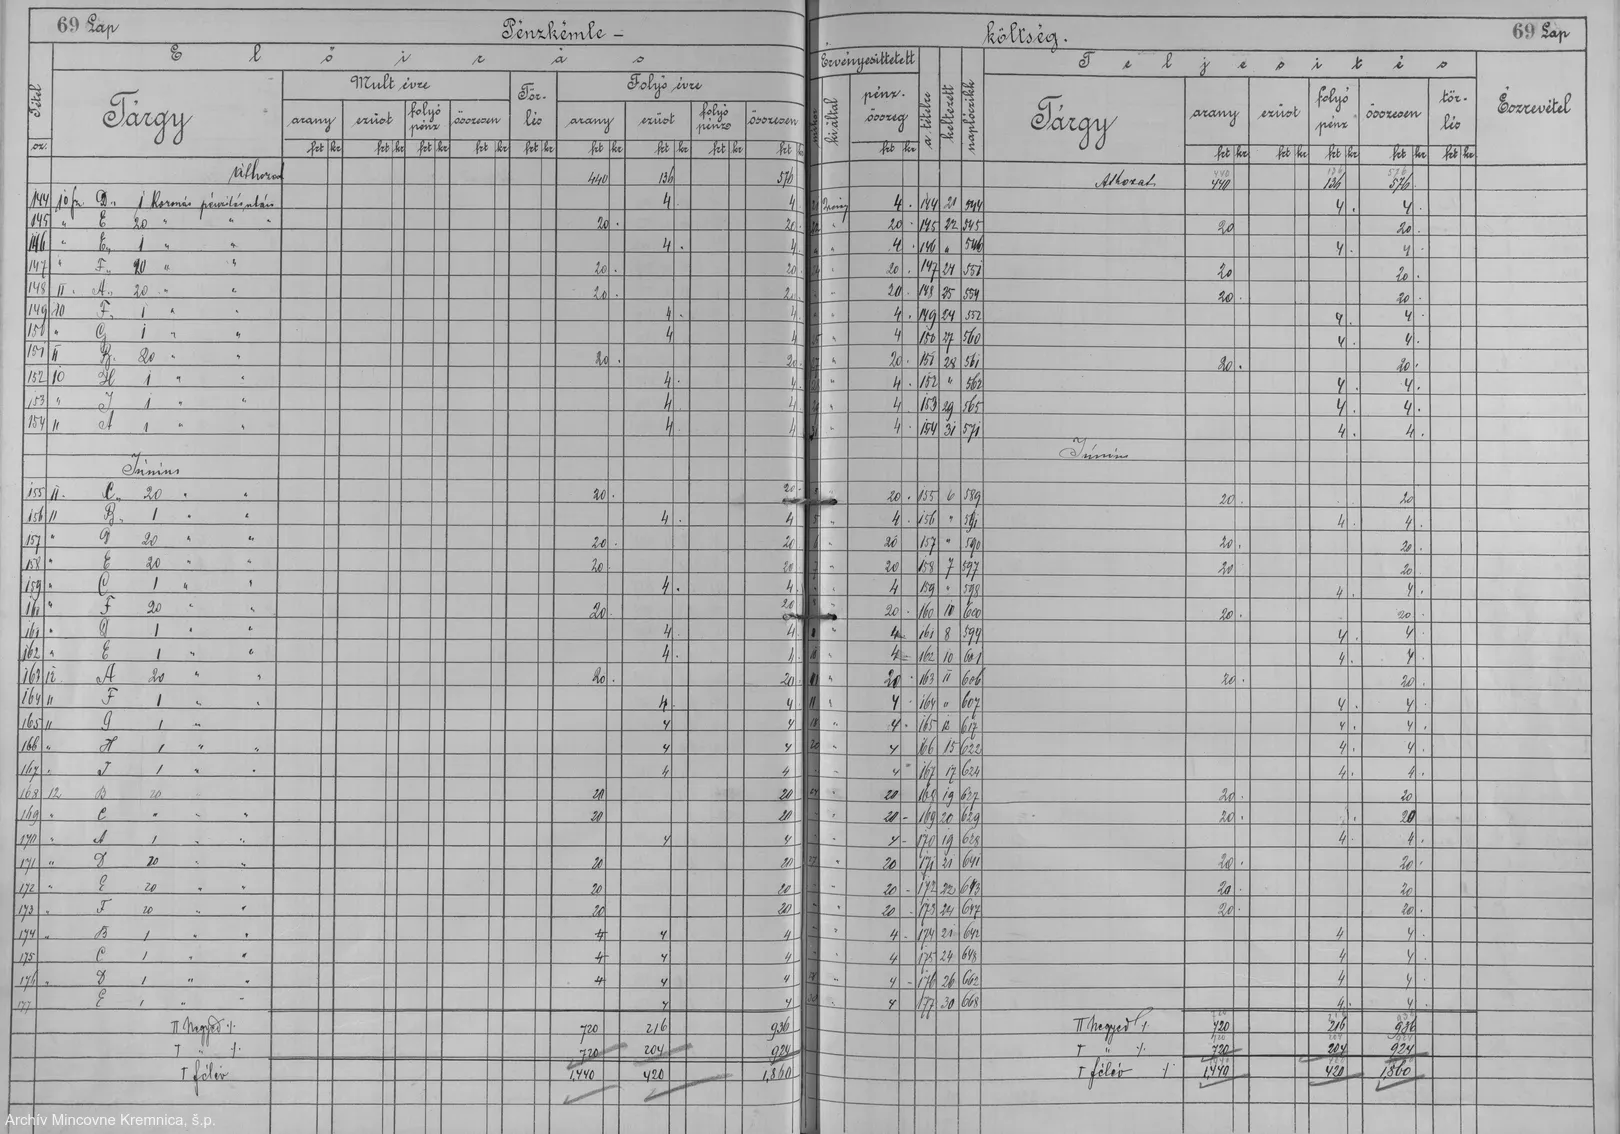 69 Lap Pénzkémle – költség. 69 Lap
Előirás
Érvényesittetett
Teljesités
Tétel sz.
Tárgy
Mult évre
Tör-lés
Folyó évre
arany ezüst folyó pénz összesen
arany ezüst folyó pénz összesen
frt kr
pénz-összeg
a tételre
keltezett
naplóczikk
Tárgy
arany ezüst folyó pénz összesen tör-lés
Észrevétel
Áthozat 440 136 576 Áthozat 440 136 576
144 10 fr. D 1 Koronás pénzítés után 4 4 4 144 21 544 4 4
145 " E 20 " " 20 20 20 145 22 545 20 20
146 " E 1 " " 4 4 4 146 " 546 4 4
147 " F 20 " " 20 20 20 147 24 551 20 20
148 11 A 20 " " 20 20 20 148 25 554 20 20
149 10 F 1 " " 4 4 4 149 24 552 4 4
150 " G 1 " " 4 4 4 150 27 560 4 4
151 11 B 20 " " 20 20 20 151 28 561 20 20
152 10 H 1 " " 4 4 4 152 " 562 4 4
153 " J 1 " " 4 4 4 153 29 565 4 4
154 11 A 1 " " 4 4 4 154 31 571 4 4
Június Június
155 11 C 20 " " 20 20 20 155 6 589 20 20
156 11 B 1 " " 4 4 4 156 " 591 4 4
157 " D 20 " " 20 20 20 157 " 590 20 20
158 " E 20 " " 20 20 20 158 7 597 20 20
159 " C 1 " " 4 4 4 159 " 598 4 4
161 " F 20 " " 20 20 20 160 10 600 20 20
161 " D 1 " " 4 4 4 161 8 594 4 4
162 " E 1 " " 4 4 4 162 10 601 4 4
163 12 A 20 " " 20 20 20 163 11 606 20 20
164 11 F 1 " " 4 4 4 164 " 607 4 4
165 11 G 1 " 4 4 4 165 12 617 4 4
166 " H 1 " " 4 4 4 166 15 622 4 4
167 " J 1 " " 4 4 4 167 17 624 4 4
168 12 B 20 20 20 20 168 19 627 20 20
169 " C " " " 20 20 20 169 20 629 20 20
170 " A 1 " " 4 4 4 170 19 628 4 4
171 " D 20 " " 20 20 20 171 21 641 20 20
172 " E 20 " " 20 20 20 172 22 643 20 20
173 " F 20 " " 20 20 20 173 24 647 20 20
174 " B 1 " " 4 4 4 174 21 642 4 4
175 C 1 " " 4 4 4 175 24 648 4 4
176 " D 1 " " 4 4 4 176 26 662 4 4
177 E 1 " " 4 4 4 177 30 668 4 4
II Negyed 720 216 936 II Negyed 720 216 936
I " 720 204 924 I " 720 204 924
I félév 1,440 420 1,860 I félév 1,440 420 1,860
Archív Mincovne Kremnica, š.p.